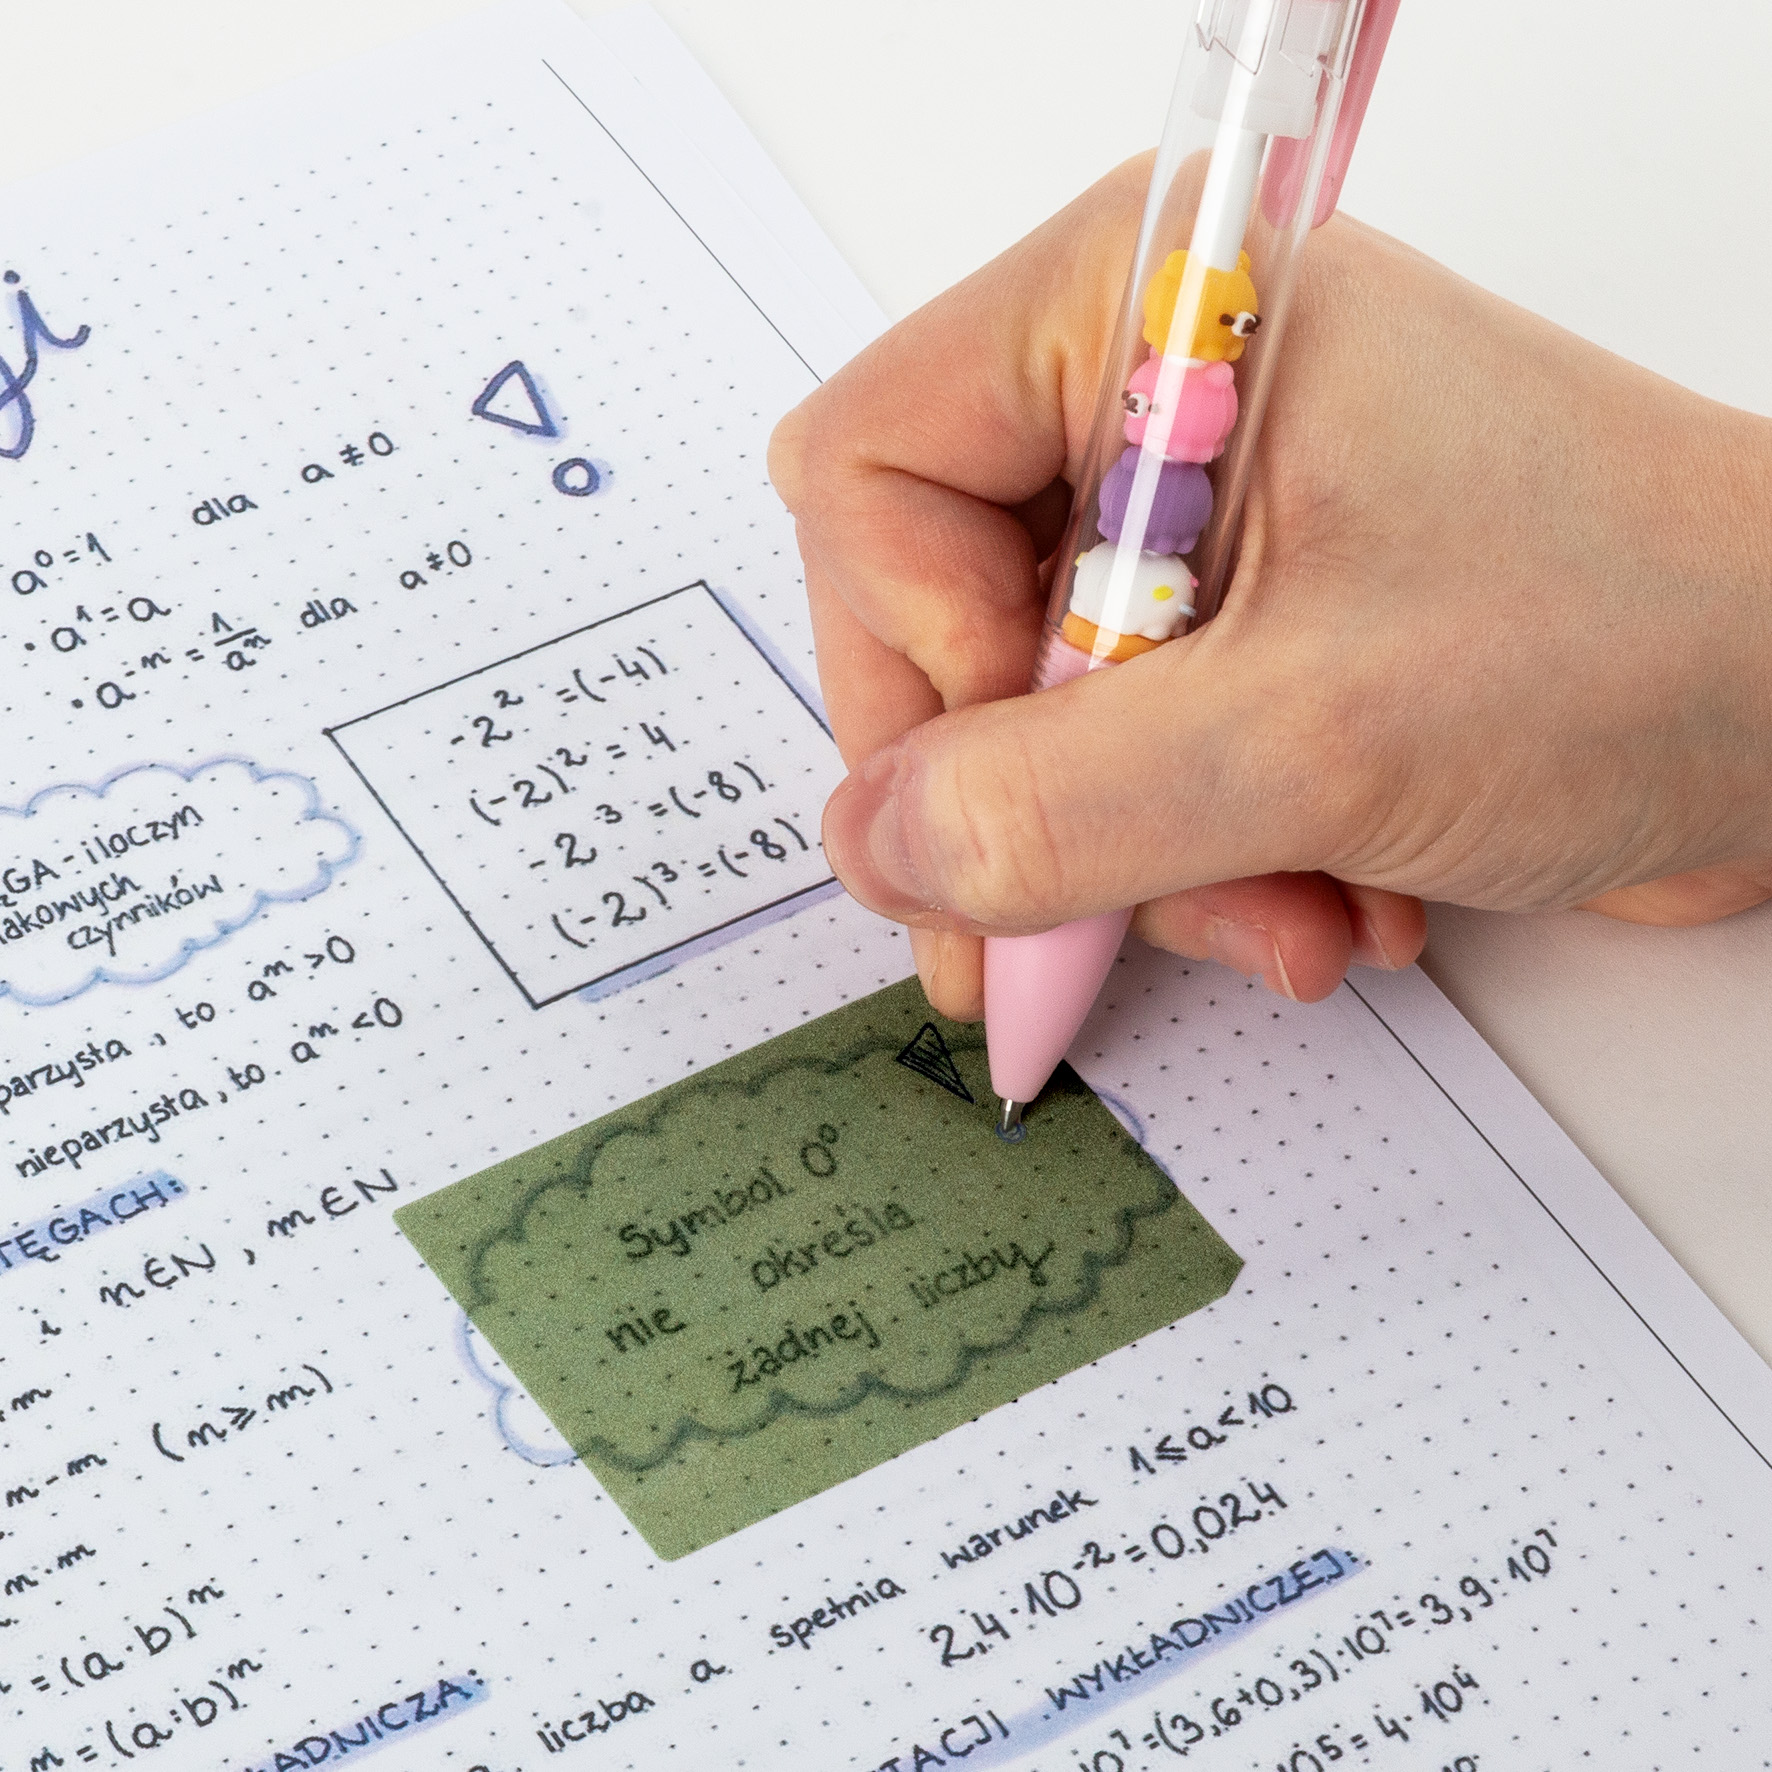 a⁰ = 1 dla a ≠ 0
• a¹ = a
• a⁻ⁿ = 1/aⁿ dla a ≠ 0
-2² = (-4)
(-2)² = 4
-2³ = (-8)
(-2)³ = (-8)
- iloczyn
czynników
parzysta, to aⁿ > 0
nieparzysta, to aⁿ < 0
i n∈N, m∈N
Symbol 0⁰
nie określa
żadnej liczby
(n ≥ m)
= (a·b)ⁿ
= (a:b)ⁿ
liczba a spełnia warunek 1 ≤ a < 10
2,4·10⁻² = 0,024
WYKŁADNICZEJ:
10⁷ = (3,6+0,3)·10⁷ = 3,9·10⁷
10⁵ = 4·10⁴